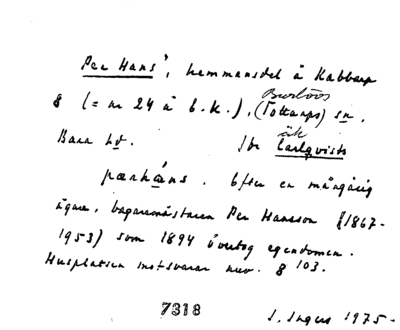 Per Hans', hemmansdel å Kabbarp
Burlövs
8 (= nr 24 å e.k.), (Tottarps) sn,
äk
Bara hd. Jbr Carlqvists
pærháns. Efter en mångårig
ägare, bagaremästaren Per Hansson (1867-
1953) som 1894 övertog egendomen.
Husplatsen motsvarar nuv. 8 103.
7318 J. Ingers 1975-